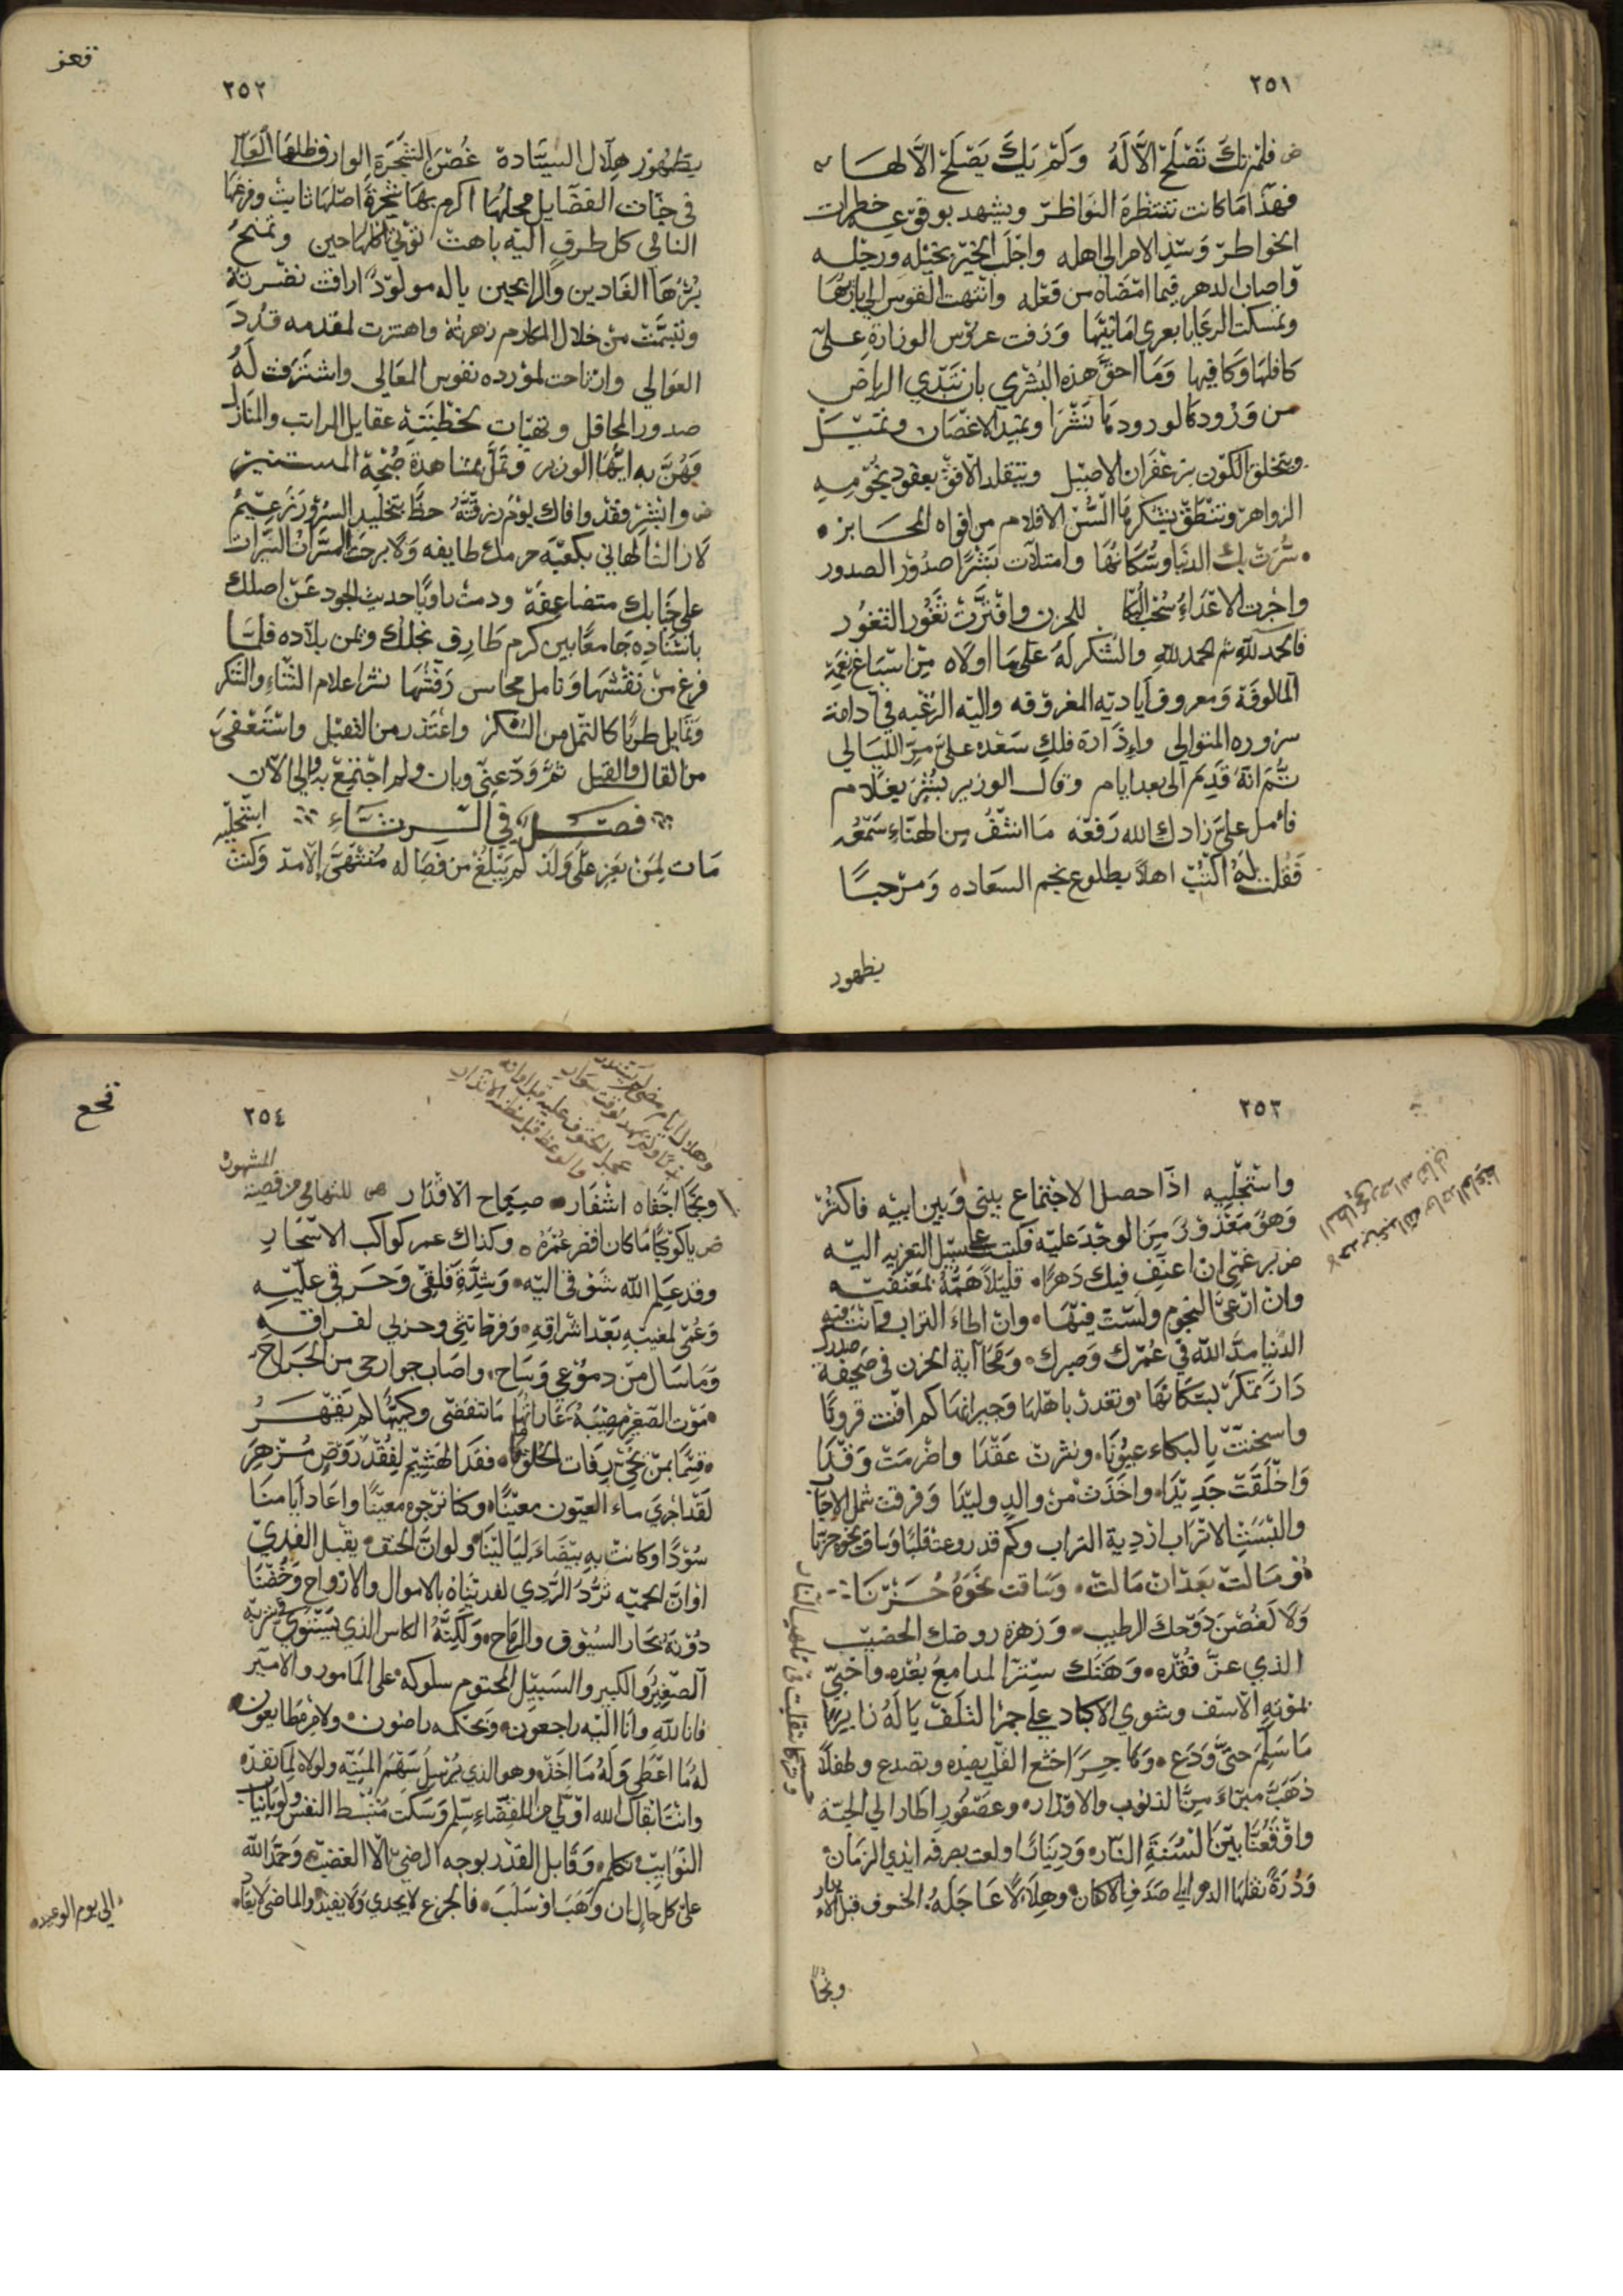 ٢٥١
فلم تك تصلح الا له ولم يك يصلح الا لها
فهذا ما كانت تنتظره النواظر ويشهد بوقوعه خطرات
الخواطر وسد الامر الى اهله واجلب الخير بخيله ورجله
واصاب الدهر فيما امضاه من فعله وانتهت القوس الى باريها
وتمسكت الرعايا بعرى امانيها وزفت عروس الوزارة على
كافلها وكافيها وما احق هذه البشرى بان تبدي الرياض
من ورودها لورودها نشرا وتميد الاغصان وتميل
ويتخلق الكون بزعفران الاصيل ويتقلد الافق بعقود نجومه
الزواهر وتنطق بشكرها السن الاقلام من افواه المحابر
سرت بك الدنيا وسكانها وامتلات بشرا صدور الصدور
واجرت الاعداء سحب البكا للحزن وافترت ثغور الثغور
فالحمد لله ثم الحمد لله والشكر له على ما اولاه من اسباغ نعمه
المالوفة ومعروف اياديه المعروفه واليه الرغبه في دامة
سروره المتوالي وادارة فلك سعده على مر الليالي
ثم انه قدم الى بعد ايام وقال الوزير بشر بغلام
فامل علي زادك الله رفعه ما اشنف من الهناء سمعه
فقلت له اكتب اهلا بطلوع نجم السعاده ومرحبا
بظهور
٢٥٢
بظهور هلال السيادة غصن الشجرة الوارف ظلها العالي
في جنات الفضايل محلها اكرم بها شجرة اصلها ثابت وفرعها
النامي كل طرف اليه باهت تؤتي اكلها كل حين وتمنح
بزهرها الغادين والرايحين ياله مولود اراقت نضرته
وتبسمت من خلال المكارم زهرته واهتزت لمقدمه قدود
العوالي وارتاحت لمورده نفوس المعالي واشترفت له
صدور المحافل وتهيات لخطبته عقايل المراتب والمنازل
فهن به ايها الوزر وتمل بمشاهدة صبحه المستنير
وابشر فقد وافاك يوم رزقته حظ بتخليد السرور زعيم
لا زالت التهاني بكعبة حرمك طايفه ولا برحت المسرات النيرات
على جنابك متضاعفة ودمت راويا حديث الجود عن اصلك
باسناده جامعا بين كرم طارف نجلك وتمن بلاده فلما
فرغ من نقشها وتامل محاسن رقشها نشر اعلام الثناء والشكر
وتمايل طربا كالثمل من السكر واعتذر من التقيل واستعفى
من القال والقيل ثم ودعني وبان ولم اجتمع به الى الان
فصل في الرثاء
مات لمن يعز علي ولد لم يبلغ من فصاله منتهى الامد وكنت
استجليه
٢٥٣
واستجليه اذا حصل الاجتماع بيني وبين ابيه فاكثر
وهو معذور من الوجد عليه فكتبت على سبيل التعزيه اليه
برغمي ان اعنف فيك دهرا قليلا همه بمعنفيه
وان ارعى النجوم ولست فيها وان اطاء التراب وانت فيه
الدنيا مد الله في عمرك وصبرك ومحا آية الحزن في صحيفة صدرك
دار تمكر بسكانها وتغدر باهلها وجيرانها كم افنت قرونا
واسخنت بالبكاء عيونا ونثرت عقدا واضرمت وقدا
واخلقت جديدا واخذت من والد وليدا وفرقت شمل الاحباب
والبست الاتراب اردية التراب وكم قد روعت قلبا وساقت نحوه حزنا
وما لت بعد ان مالت وساقت نحوه حزنا
ولا كغصن دوحك الرطيب وزهرة روضك الخصيب
الذي عز فقده وهتك ستر المدامع بعده واحيى
بموته الاسف وشوي الاكباد على جمر التلف يا له زايرا
ما سلم حتى ودع وهاجرا خشع القلب بعده وتصدع وطفلا
ذهب مبراء من الذنوب والاوزار وعصفورا طار الى الجنة
واوقعنا بين السنة النار ودينارا ولعت بصرفه ايدي الزمان
ودرة نقلها الدهر الى صدف الاكفان وهلالا عاجله الخسوف قبل الابدار
ونجما
٢٥٤
ونجما اخفاه اشفار صباح الاقدار
يا كوكبا ما كان اقصر عمره وكذاك عمر كواكب الاسحار
وقد علم الله شوقي اليه وشدة قلقي وحرقي عليه
وغمي لمغيبه بعد اشراقه وفرط بثي وحزني لفراقه
وما سال من دموعي وساح واصاب جوارحي من الجراح
موت الصغير مصيبة غاراتها ما تنقضي وكميتها لم يقهر
قسما بمن يحيي رفات الخلق ما فقد الهشيم كفقد روض مزهر
لقد اجرى ماء العيون معينا وكنا نرجوه معينا واعاد ايامنا
سودا وكانت به بيضاء ليالينا ولو ان الحتف يقبل الفدي
او ان الحميه ترد الردي لفديناه بالاموال والارواح وخضنا
دونه بحار السيوف والرماح ولكنه الكاس الذي يستوي في شربه
الصغير والكبير والسبيل المحتوم سلوكه على المامور والامير
فانا لله وانا اليه راجعون وبحكمه راضون ولامره طايعون
له ما اعطى وله ما اخذه وهو الذي يرسل سهم المنية ولولاه لما نفذه
وانت ابقاك الله اولى من للقضاء سلم وسكت
النوايب تكلم وقابل القدر بوجه الرضى لا الغضب وحمد الله
على كل حال ان وهب او سلب فالجزع لا يجدي ولا يفيد والماضي لا يعاد
الى يوم الوعيد